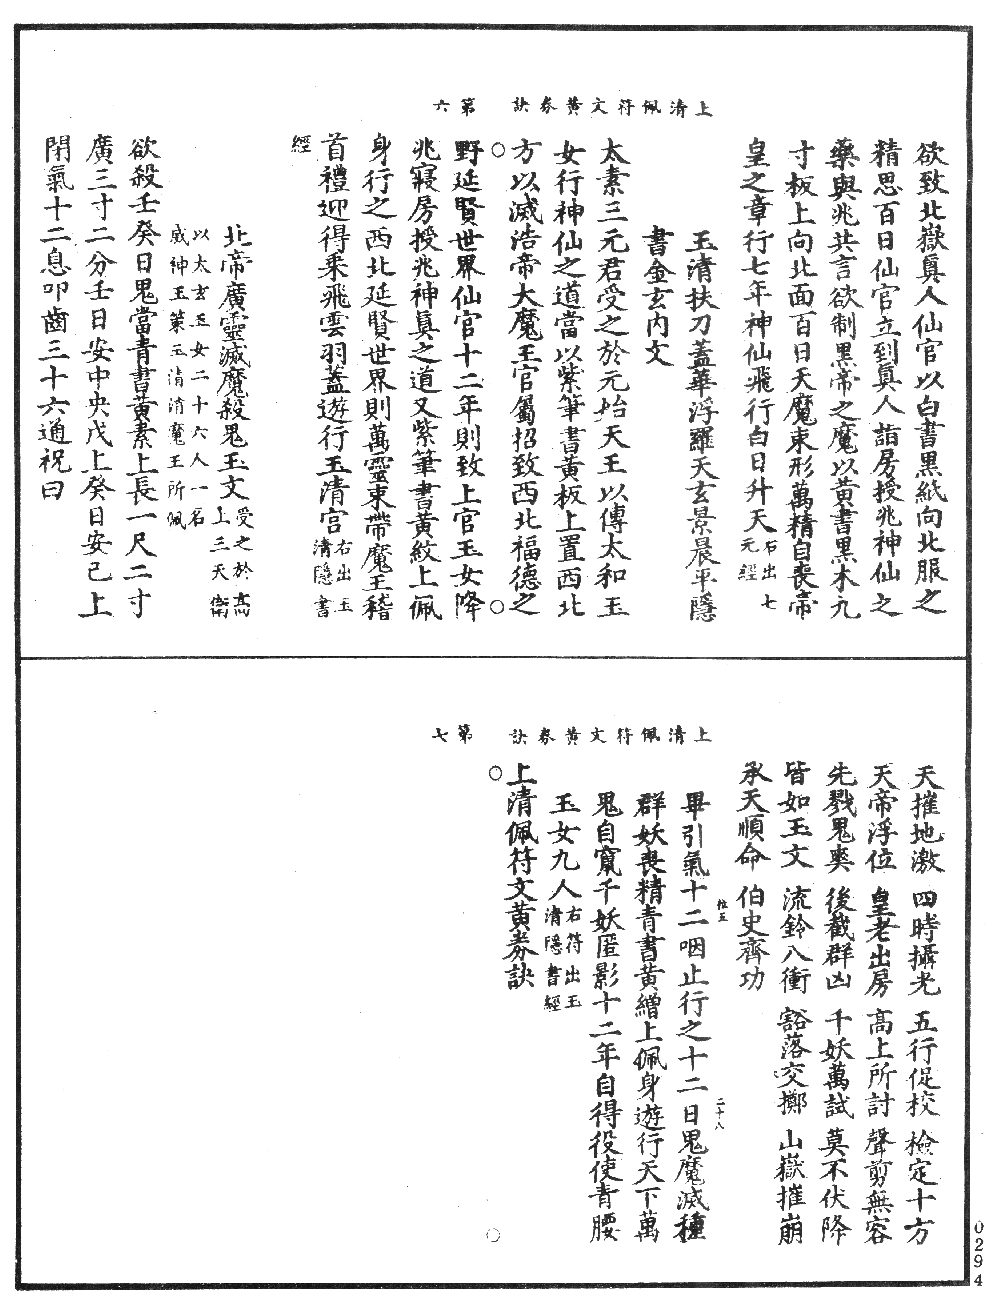 上清佩符文黃券訣　第六
欲致北嶽真人仙官以白書黑紙向北服之
精思百日仙官立到真人詣房授兆神仙之
藥與兆共言欲制黑帝之魔以黃書黑木九
寸板上向北面百日天魔束形萬精自喪帝
皇之章行七年神仙飛行白日升天右出七元經
玉清扶刀蓋華浮羅天玄景晨平隱
書金玄內文
太素三元君受之於元始天王以傳太和玉
女行神仙之道當以紫筆書黃板上置西北
方以滅浩帝大魔王官屬招致西北福德之
野延賢世界仙官十二年則致上官玉女降
兆寢房授兆神真之道又紫筆書黃紋上佩
身行之西北延賢世界則萬靈束帶魔王稽
首禮迎得乘飛雲羽蓋遊行玉清宮右出玉清隱書
經
北帝廣靈滅魔殺鬼玉文受之於高上三天衛
以太玄玉女二十六人一名
威神玉策玉清消魔王所佩
欲殺壬癸日鬼當青書黃素上長一尺二寸
廣三寸二分壬日安中央戊上癸日安己上
閉氣十二息叩齒三十六通祝曰
上清佩符文黃券訣　第七
天摧地激　四時攝光　五行促校　檢定十方
天帝浮位　皇老出房　高上所討　聲剪無容
先戮鬼爽　後截群凶　千妖萬試　莫不伏降
皆如玉文　流鈴八衝　豁落交擲　山嶽摧崩
承天順命　伯史齊功
畢引氣十二咽止行之十二日鬼魔滅種
群妖喪精青書黃繒上佩身遊行天下萬
鬼自竄千妖匿影十二年自得役使青腰
玉女九人右符出玉清隱書經
上清佩符文黃券訣
二十八
0294